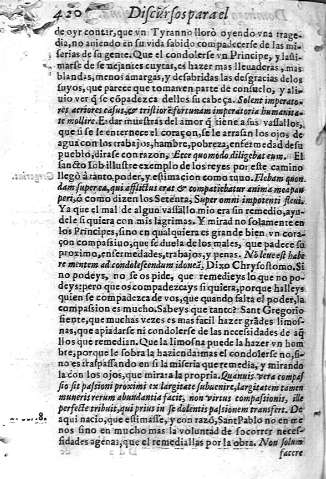 420 Discursos para el
de oyr contar, que vn Tyranno lloró oyendo vna trage
dia, no auiendo en su vida sabido compadecerse de las mi
serias de su gente. Que el condolerse vn Principe, y lasti
marse de semejantes cuytas, es hazer mas lleuaderas, mas
blandas, menos amargas, y desabridas las desgracias de los
suyos, que parece que toman en parte de consuelo, y ali
uio ver q̃ se cõpadezca dellos su cabeça. Solent imperato-
res acriores casus, & tristiorẽ fortunam imperatoria humanita
te mollire. Es dar muestras del amor q̃ tiene a sus vassallos,
que si se le enternece el coraçon, se le arrasan los ojos de
agua con los trabajos, hambre, pobreza, enfermedad de su
pueblo, dirase con razon, Ecce quomodo diligebat eum. El
sancto Iob illustre exemplo de los reyes por este camino
llegò à tanto poder, y estimacion como tuuo. Flebam quon
dam super ea, qui afflictus erat & compatiebatur anima mea pau
peri, ó como dizen los Setenta, Super omni impotenti fleui.
Ya que el mal de algun vassallo mio era sin remedio, ayu-
dele si quiera con mis lagrimas. Y mirad no solamente en
los Principes, sino en qualquiera es grande bien vn cora-
çon compassiuo, que se duela de los males, que padece su
proximo, enfermedades, trabajos, y penas. No leue est habe
re mentem ad condolescendum idoneã, Dixo Chrysostomo. Si
no podeys, no se os pide, que remedieys lo que no po-
deys: pero que os compadezcays si quiera, porque halleys
quien se compadezca de vos, que quando falta el poder, la
compassion es mucho. Sabeys que tanto? Sant Gregorio
siente, que muchas vezes es mas facil hazer grãdes limos-
nas, que apiadarse ni condolerse de las necesidades de aq̃
llos que remedian. Que la limosna puede la hazer vn hom
bre, porque le sobra la hazienda: mas el condolerse no, si-
no es traspassando en si la miseria que remedia, y mirando
la con los ojos, que mira a la propria. Quamuis vera compas
sio sit passioni proximi ex largitate subuenire, largitatem tamen
muneris rerum abundantia facit, non virtus compassionis, ille
perfecte tribuit, qui prius in se dolentis passionem transfert. De
aqui nacio, que estimasse, y con razõ, Sant Pablo no en me
nos sino en mucho mas la voluntad de socorrer neces-
8.
sidades agenas, que el remediallas por la obra. Non solum
facere